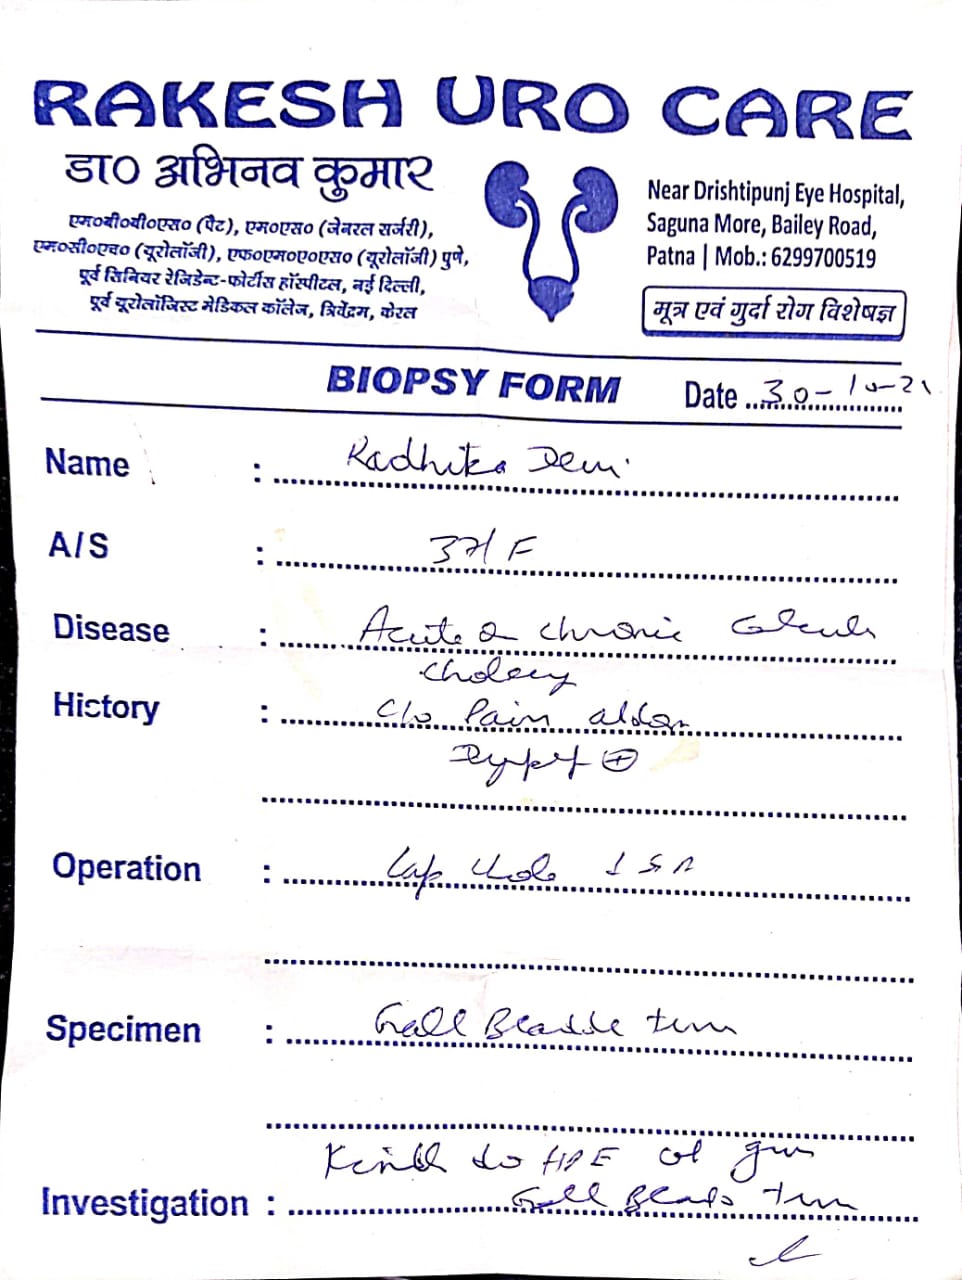 RAKESH URO CARE
डा० अभिनव कुमार
एम०बी०बी०एस० (पैट), एम०एस० (जेनरल सर्जरी),
एम०सी०एच० (यूरोलॉजी), एफ०एम०ए०एस० (यूरोलॉजी) पुणे,
पूर्व सिनियर रेजिडेन्ट-फोर्टीस हॉस्पीटल, नई दिल्ली,
पूर्व यूरोलॉजिस्ट मेडिकल कॉलेज, त्रिवेंद्रम, केरल
Near Drishtipunj Eye Hospital,
Saguna More, Bailey Road,
Patna | Mob.: 6299700519
मूत्र एवं गुर्दा रोग विशेषज्ञ
BIOPSY FORM Date 30-10-21
Name : Radhika Devi
A/S : 37/F
Disease : Acute on chronic
History : c/o Pain abdom
⊕
Operation : Lap chole
Specimen : Gall Bladde
Kindly do HPE of given
Investigation : Gall Bladd